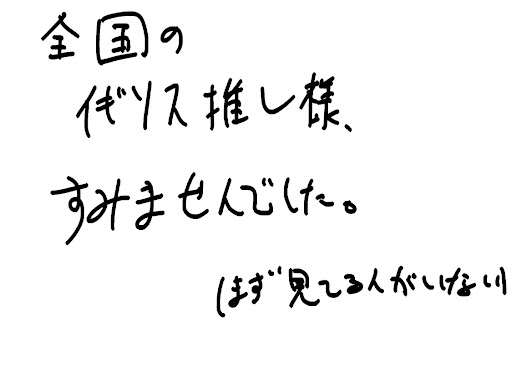 全国の
イギリス推し様、
すみませんでした。
(まず見てる人がいない)